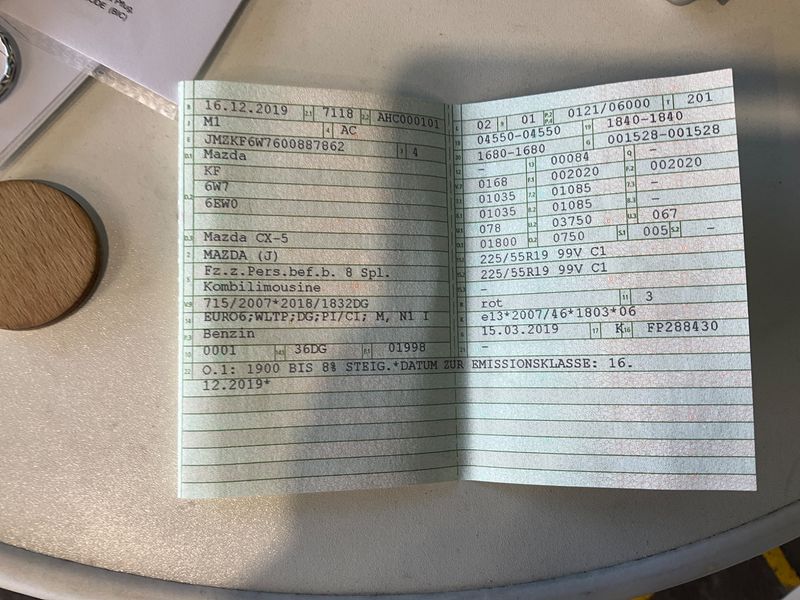 Pflug.
CODE (BIC)
B 16.12.2019 2.1 7118 2.2 AHC000101
J M1 4 AC
E JMZKF6W7600887862 3 4
D.1 Mazda
D.2 KF
6W7
6EW0
D.3 Mazda CX-5
2 MAZDA (J)
5 Fz.z.Pers.bef.b. 8 Spl.
Kombilimousine
V.9 715/2007*2018/1832DG
14 EURO6;WLTP;DG;PI/CI; M, N1 I
P.3 Benzin
10 0001 14.1 36DG P.1 01998
22 O.1: 1900 BIS 8% STEIG.*DATUM ZUR EMISSIONSKLASSE: 16.
12.2019*
L 02 9 01 P.2 P.4 0121/06000 T 201
18 04550-04550 19 1840-1840
20 1680-1680 G 001528-001528
12 - 13 00084 Q -
V.7 0168 F.1 002020 F.2 002020
7.1 01035 7.2 01085 7.3 -
8.1 01035 8.2 01085 8.3 -
U.1 078 U.2 03750 U.3 067
O.1 01800 O.2 0750 S.1 005 S.2 -
15.1 225/55R19 99V C1
15.2 225/55R19 99V C1
15.3 -
R rot 11 3
K e13*2007/46*1803*06
6 15.03.2019 17 K 16 FP288430
21 -